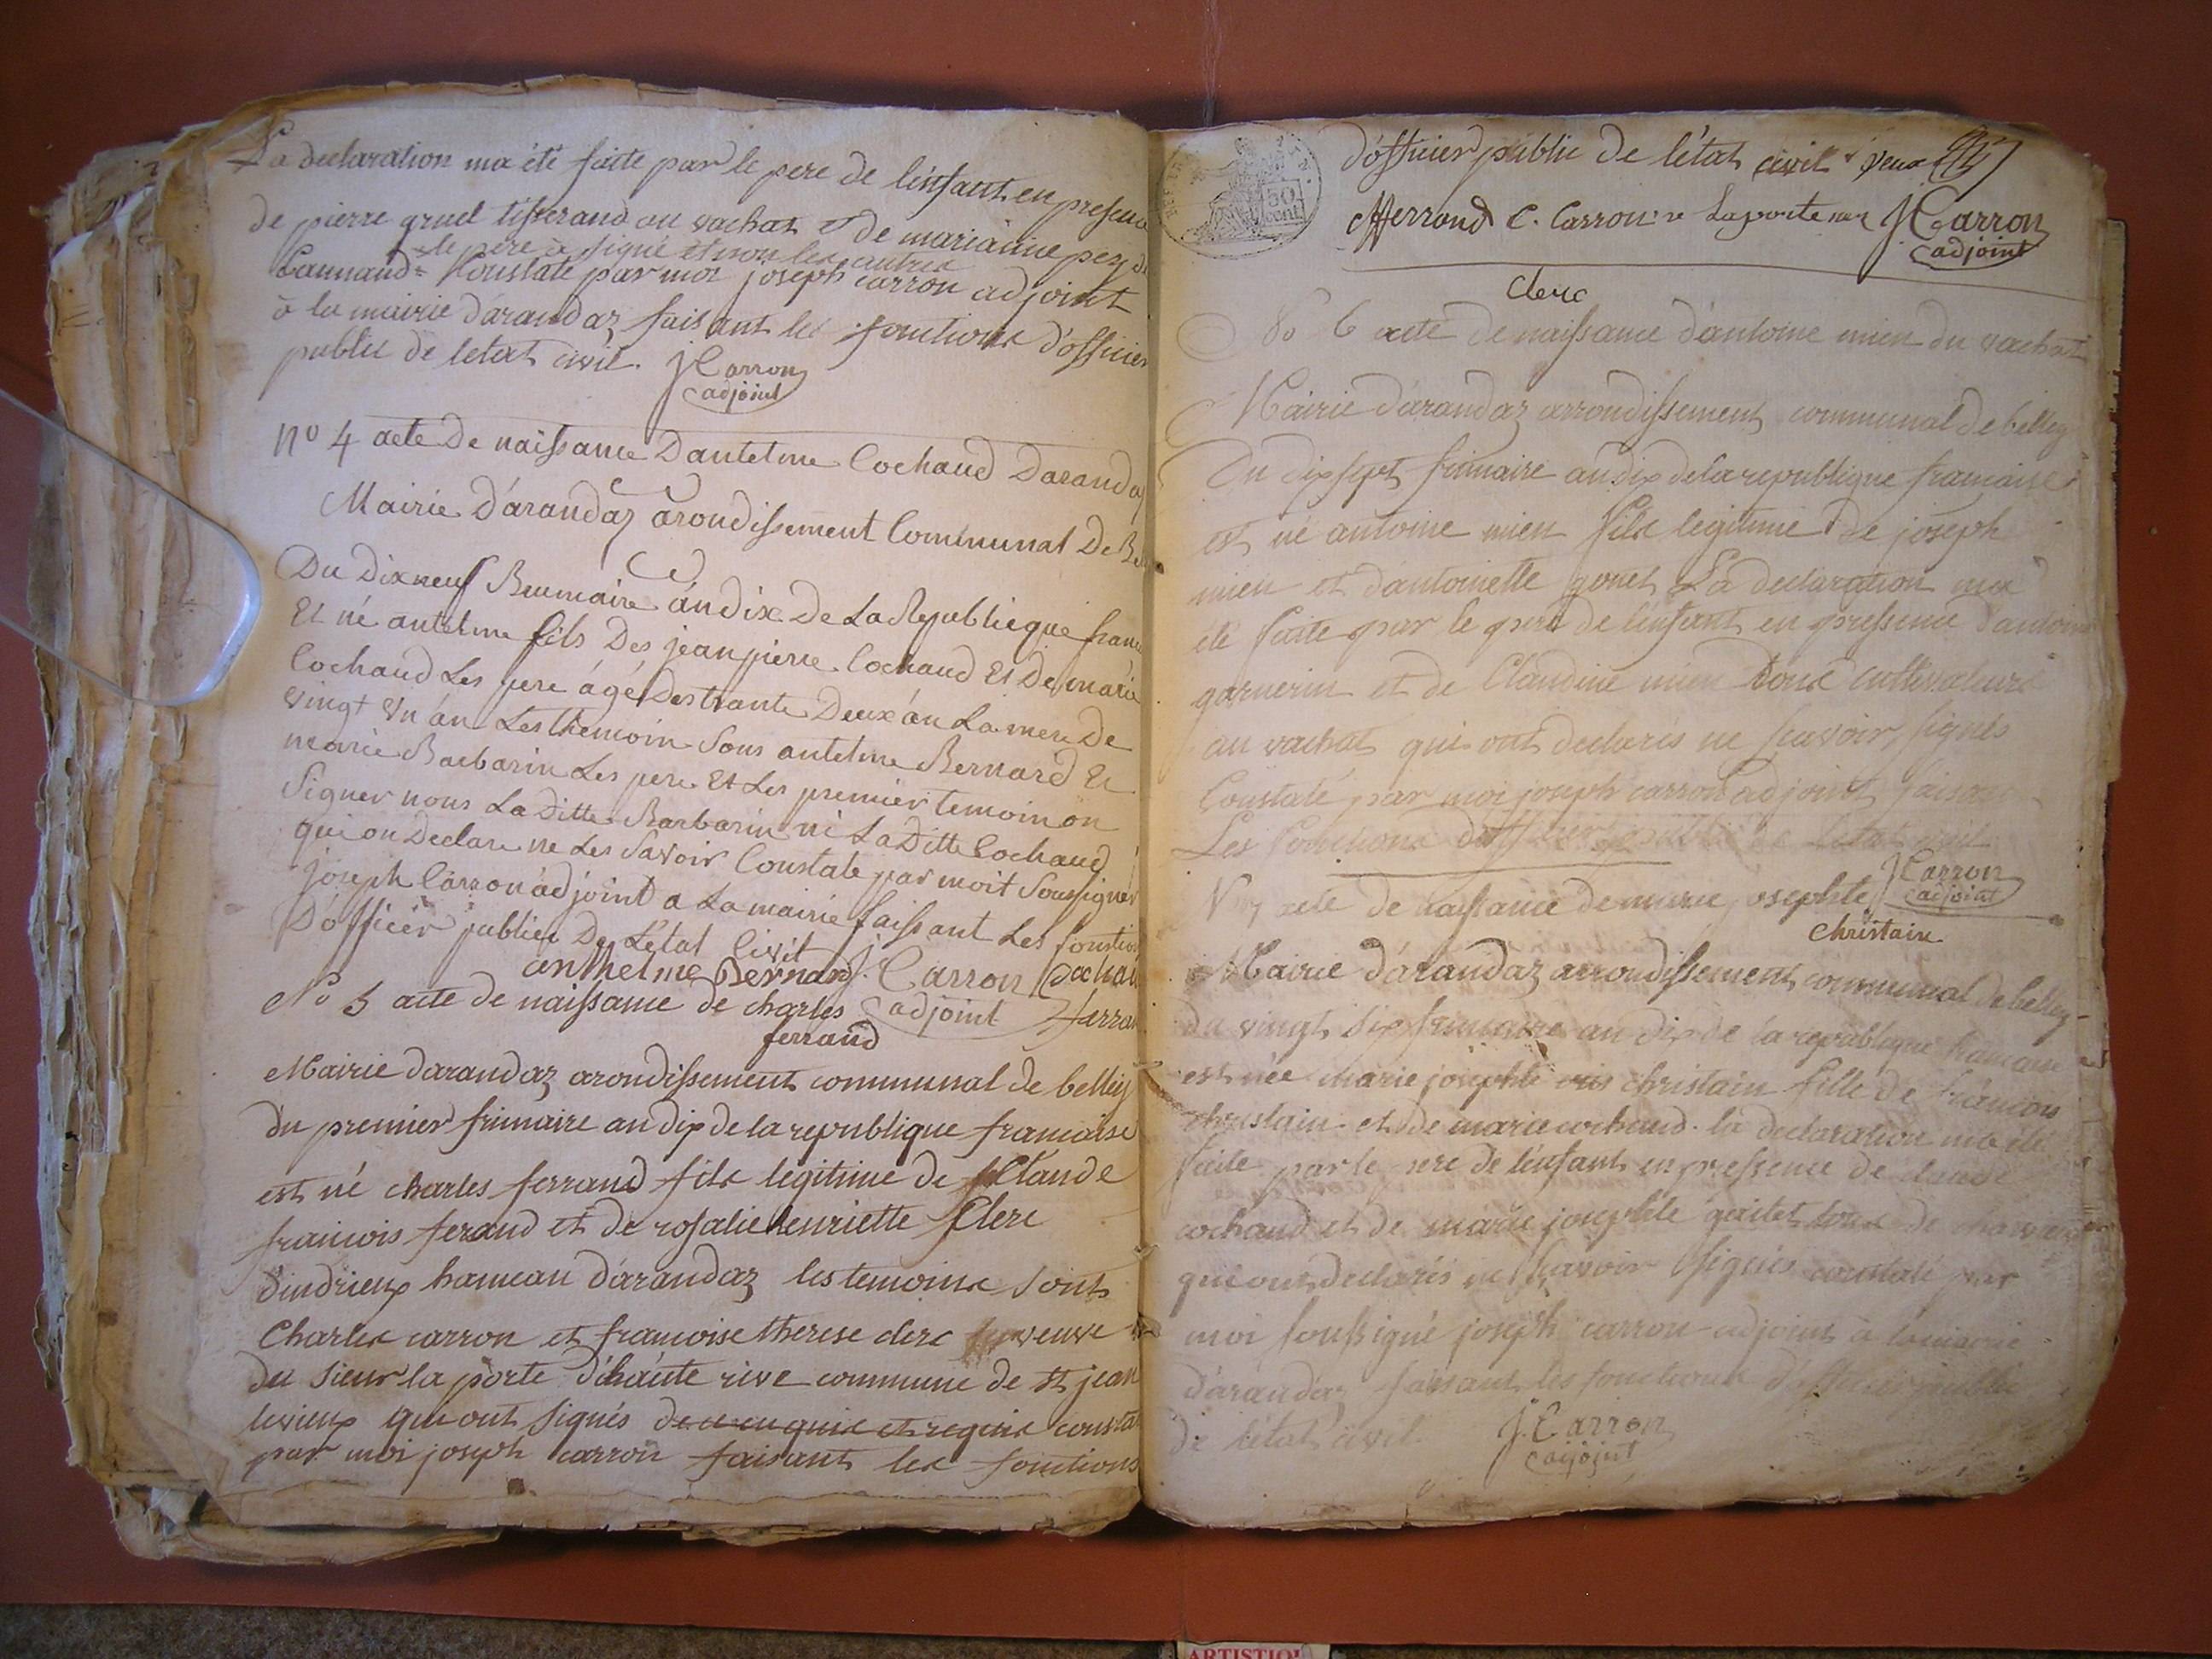 La declaration ma été faite par le pere de l'enfant en presence
de pierre gruel tisserand au vachat et de marianne pery de
=le pere a signé et non les autres
Lannaud= Constaté par moi joseph carron adjoint
à la mairie d'arandaz faisant les fonctions d'officier
public de letat civil. J Carron
adjoint
N° 4 acte De naissance Dantelme Cochaud Darandaz
Mairie D'arandaz arondissement Communal De
Du Dixneuf Brumaire án dix De La Republieque
Et né antelme fils Des jean pierre Cochaud Et De marie
Cochaud Les pere ágé Des trante Deux án La mere De
vingt Un án Les themoin Sons antelme Bernard Et
marie Barbarin Les pere Et Les premier temoin on
Signer nous La Ditte Barbarin ni La Ditte Cochaud
qui on Declare ne Les Savoir Constate par moit Soussigner
joseph Carron ádjoint a La mairie faissant Les
D'officier publier De L'état Civit
anthelme Bernard J. Carron
adjoint
N° 5 acte de naissance de charles
ferrand
Mairie darandaz arondissement communal de belley
du premier frimaire an dix de la republique francaise
est né charles ferrand fils legitime de Claude
francois ferand et de rosalie henriette Clerc
dindrieux hameau d'arandaz les temoins sont
Charles carron et francoise therese clerc veuve
du sieur la porte d'haute rive commune de st jean
levieux qui ont signés constaté
par moi joseph carron faisant les fonctions
d'officier public de l'état civil
Fferrand C. Carron Laporte J Carron
adjoint
Clerc
No 6 acte de naissance d'antoine mien du vachat
Mairie d'arandaz arrondissement communal de belley
Du dix sept frimaire an dix de la republique francaise
est né antoine mien fils legitime de joseph
mien et d'antoinette gonet La declaration ma
été faite par le pere de l'enfant en presence d'antoine
garnerin et de Claudine mien tous cultivateurs
au vachat qui ont declarés ne scavoir signés
Constaté par moi joseph carron adjoint faisant
Les fonctions d'officier public de letat civil
J Carron
adjoint
N 7 acte de naissance de marie josephte
Christain
Mairie d'arandaz arrondissement communal de belley
du vingt six frimaire an dix de la republique francaise
est née marie josephte christain fille de francois
christain et de marie cochaud. la declaration ma été
faite par le pere de l'enfant en presence de claude
cochaud et de marie josephte tous de
qui ont declarés ne scavoir signés constaté par
moi soussigné joseph carron adjoint à la mairie
d'arandaz faisant les fonctions d'officier public
de l'état civil. J. Carron
adjoint
ARTISTIQUE